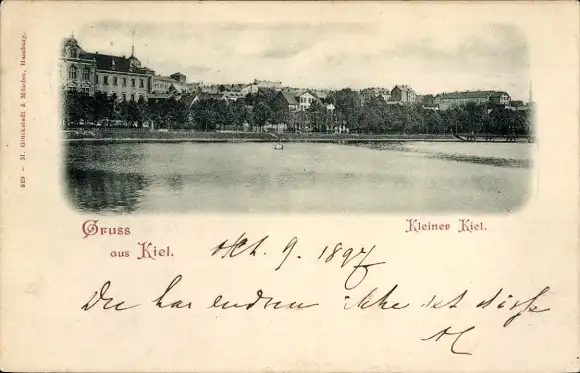 529 — M. Glückstadt & Münden, Hamburg.
Gruss
aus Kiel.
Kleiner Kiel.
Okt. 9. 1897
Du har endnu ikke